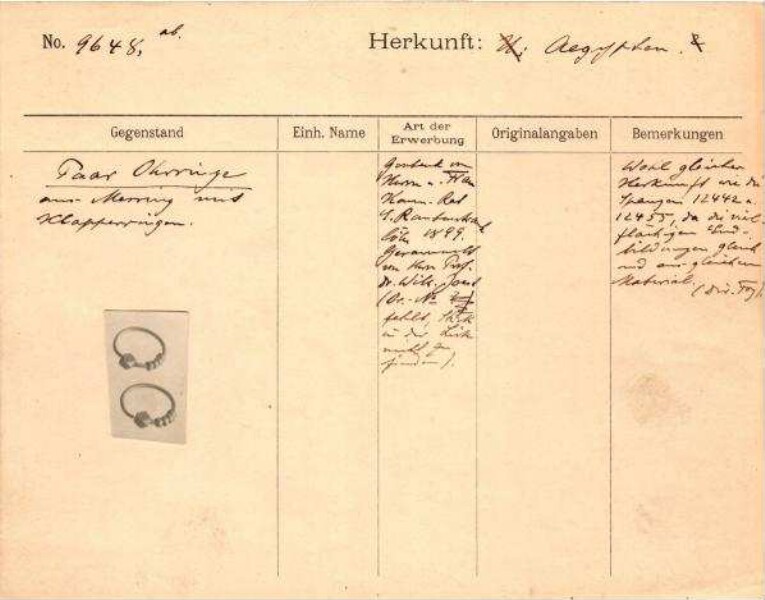 No. 9648, ab. Herkunft: Aegypten.
Gegenstand
Einh. Name
Art der
Erwerbung
Originalangaben
Bemerkungen
Paar Ohrringe
aus Messing mit
Klapperringen.
Geschenk von
Herrn u. Frau
Komm. Rat
E. Rautenstrauch
Cöln 1899.
Gesammelt
von Herrn Prof.
Dr. Wilh. Joest
(Or.- No
fehlt, Stück
in der Liste
nicht zu
finden).
Wohl gleicher
Herkunft wie die
Spangen 12442 u.
12455, da die viel-
flächigen End-
bildungen gleich
und aus gleichem
Material.
(Dir. Foy).